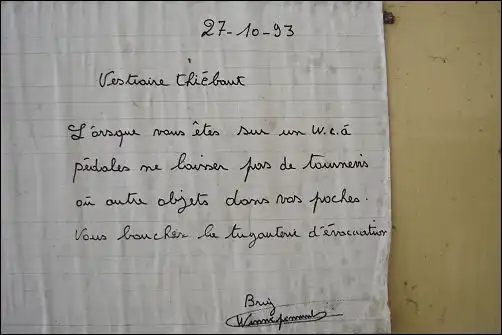 27-10-93
Vestiaire Thiébaut
L'orsque vous êtes sur un W.c. à
pédales ne laisser pas de tournevis
où autre objets dans vos poches.
Vous boucher la tuyauterie d'évacuation
Brig